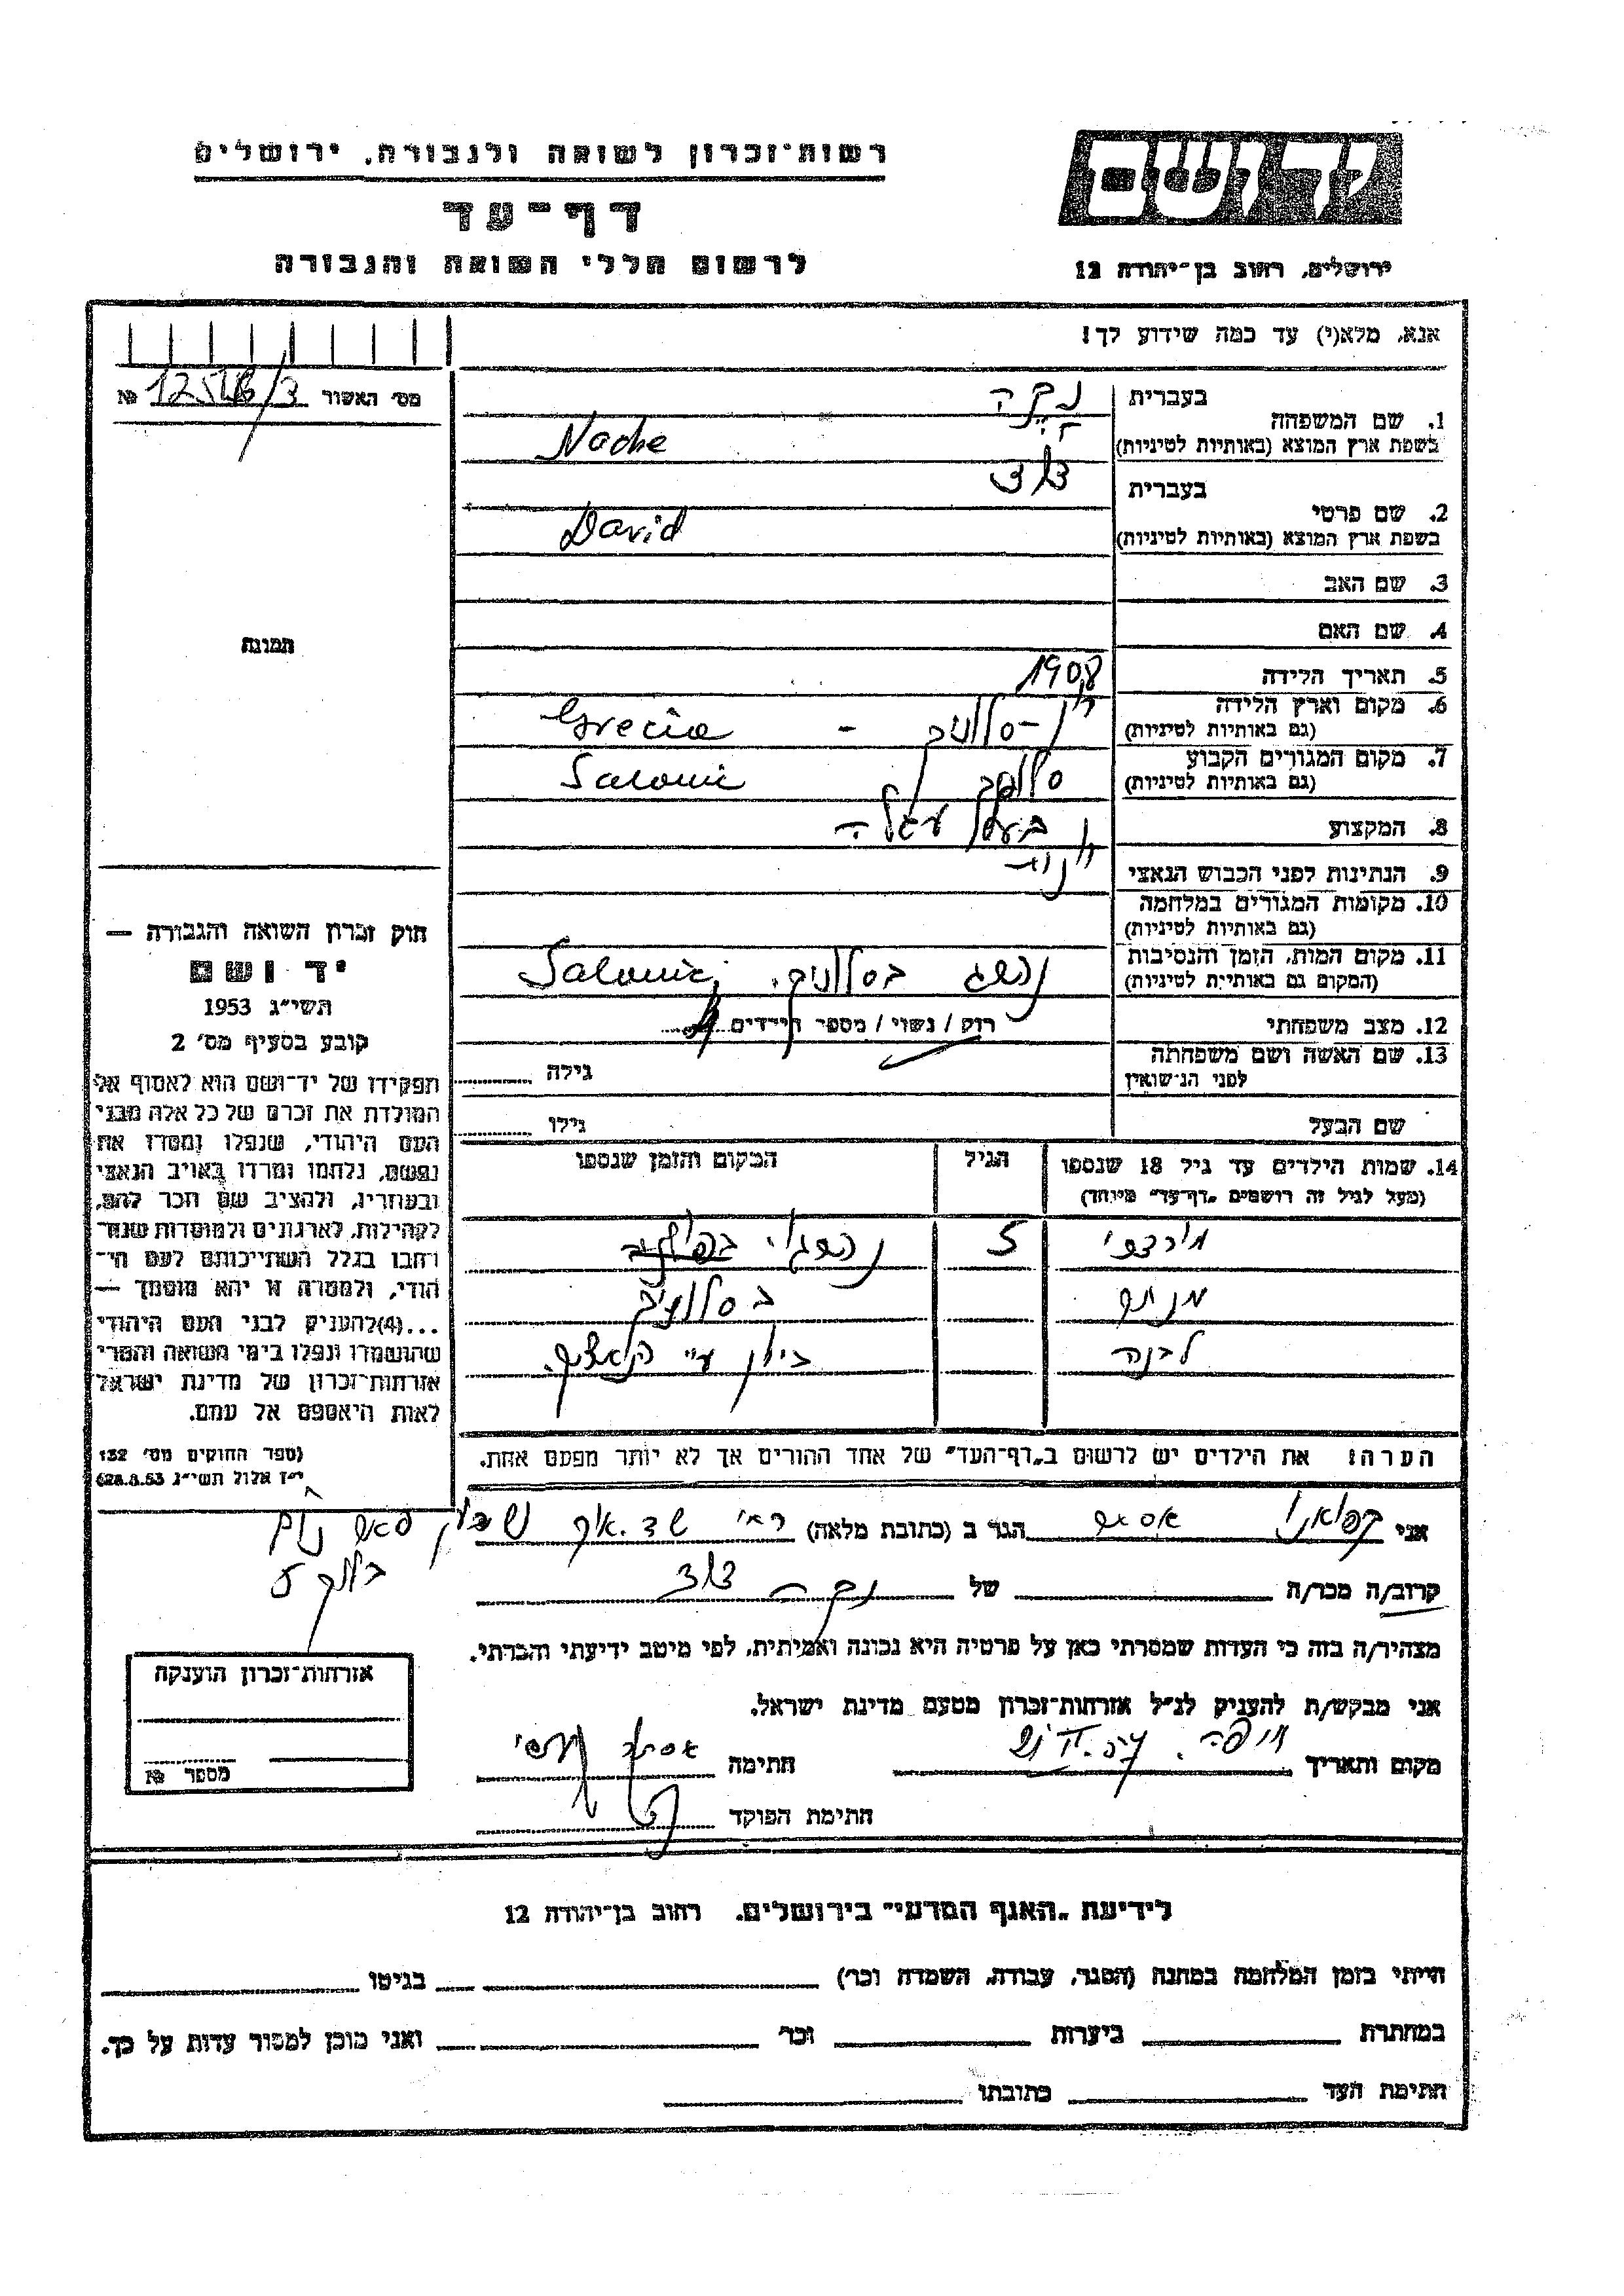 רשות־זכרון לשואה ולגבורה, ירושלים
דף־עד
לרשום חללי השואה והגבורה
ידושם
ירושלים, רחוב בן־יהודה 12
אנא, מלא(י) עד כמה שידוע לך!
מס' האשור №
1. שם המשפחה
בעברית
בשפת ארץ המוצא (באותיות לטיניות) Nache
2. שם פרטי
בעברית דוד
בשפת ארץ המוצא (באותיות לטיניות) David
3. שם האב
4. שם האם
5. תאריך הלידה 1908
6. מקום וארץ הלידה יון - סלוניקי - Grecia
(גם באותיות לטיניות)
7. מקום המגורים הקבוע סלוניקי Salonic
(גם באותיות לטיניות)
8. המקצוע בעל עגלה
9. הנתינות לפני הכבוש הנאצי
10. מקומות המגורים במלחמה
(גם באותיות לטיניות)
11. מקום המות, הזמן והנסיבות נהרג בסלוניקי. Salonic
(המקום גם באותיות לטיניות)
12. מצב משפחתי רווק / נשוי / מספר הילדים
13. שם האשה ושם משפחתה
לפני הנישואין גילה
שם הבעל גילו
14. שמות הילדים עד גיל 18 שנספו הגיל המקום והזמן שנספו
(מעל לגיל זה רושמים "דף־עד" מיוחד)
5 נהרגו
בסלוניקי
לבנה ביון ע"י הנאצים.
הערה: את הילדים יש לרשום ב"דף־העד" של אחד ההורים אך לא יותר מפעם אחת.
תמונה
חוק זכרון השואה והגבורה —
יד ושם
תשי"ג 1953
קובע בסעיף מס' 2
תפקידו של יד־ושם הוא לאסוף אל
המולדת את זכרם של כל אלה מבני
העם היהודי, שנפלו ומסרו את
נפשם, נלחמו ומרדו באויב הנאצי
ובעוזריו, ולהציב שם וזכר להם,
לקהילות, לארגונים ולמוסדות שנח־
רבו בגלל השתייכותם לעם הי־
הודי, ולמטרה זו יהא מוסמך —
...(4) להעניק לבני העם היהודי
שהושמדו ונפלו בימי השואה והמרי
אזרחות־זכרון של מדינת ישראל
לאות היאספם אל עמם.
(ספר החוקים מס' 132
י"ז אלול תשי"ג 28.8.53)
אני הגר ב (כתובת מלאה)
קרוב/ה מכר/ה של דוד
מצהיר/ה בזה כי העדות שמסרתי כאן על פרטיה היא נכונה ואמיתית, לפי מיטב ידיעתי והכרתי.
אני מבקש/ת להעניק לנ"ל אזרחות־זכרון מטעם מדינת ישראל.
מקום ותאריך חיפה חתימה
חתימת הפוקד
אזרחות־זכרון הוענקה
מספר №
לידיעת "האגף המדעי" בירושלים, רחוב בן־יהודה 12
הייתי בזמן המלחמה במחנה (הסגר, עבודה, השמדה וכו') בגיטו
במחתרת ביערות וכו' ואני מוכן למסור עדות על כך.
חתימת העד כתובתו